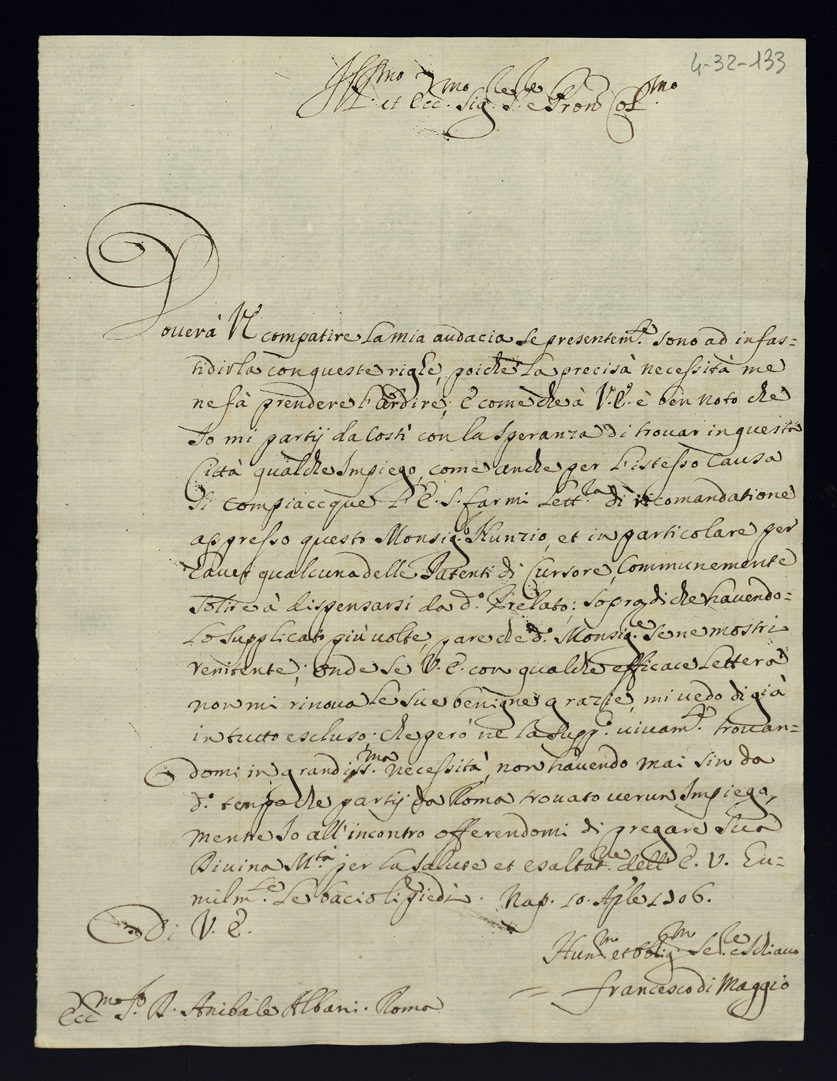 4-32-133
Ill.mo et Ecc.mo Sig.re S.re e Pron Col.mo
Douerà V.E. compatire la mia audacia se presentem.te sono ad infas=
tidirla con queste righe, poiche la precisa necessità me
ne fà prendere l'ardire; E come che à V.E. è ben noto che
Io mi partij da Costì con la speranza di trouar in questa
Città qualche Impiego, come anche per l'istesso Causa
si compiaceque l'E.S. farmi lett.ra di ricomandatione
appresso questo Monsig.r Nunzio, et in particolare per
hauer qualcuna delle Patenti di Cursore, Communemente
solite à dispensarsi da d.o Prelato; sopra di che hauendo=
lo supplicato più uolte, pare che d.o Monsig.re se ne mostri
renitente; onde se V.E. con qualche efficace lettera
non mi rinoua le sue benigne grazie, mi uedo di già
in tutto escluso: che però ne la supp.o viuam.te trouan=
domi in grandiss.ma necessità, non hauendo mai sin da
d.o tempo che partij da Roma trouato uerun Impiego,
mentre Io all'incontro offerendomi di pregare Sua
Diuina M.tà per la salute et esaltat.ne dell'E.V. Eu=
milm.te le bacio li piedi. Nap. 10 Ap̃le 1706.
Di V.E.
Hum.mo et oblig.mo Se.re e Schiauo
Francesco di Maggio
Ecc.mo S.r D. Anibale Albani. Roma